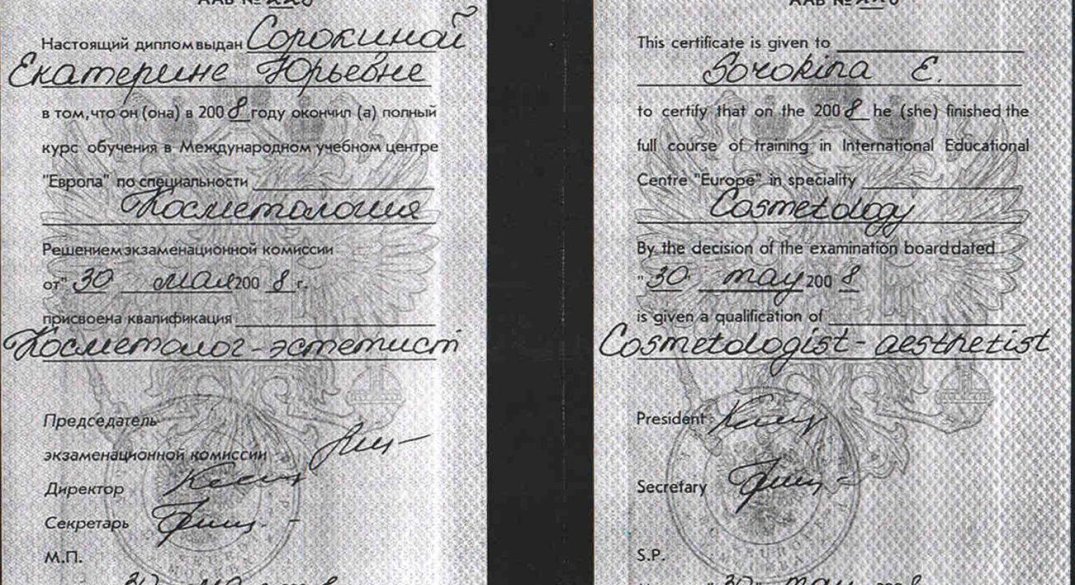 ААВ №
Настоящий диплом выдан Сорокиной
Екатерине Юрьевне
в том, что он (она) в 2008 году окончил (а) полный
курс обучения в Международном учебном центре
"Европа" по специальности
Косметология
Решением экзаменационной комиссии
от "30 мая 2008 г.
присвоена квалификация
Косметолог-эстетист
Председатель
экзаменационной комиссии
Директор
Секретарь
М.П.
30 2008
AAB №
This certificate is given to
Sorokina E.
to certify that on the 2008 he (she) finished the
full course of training in International Educational
Centre "Europe" in speciality
Cosmetology
By the decision of the examination board dated
"30 may 2008
is given a qualification of
Cosmetologist-aesthetist
President
Secretary
S.P.
"30" may 2008